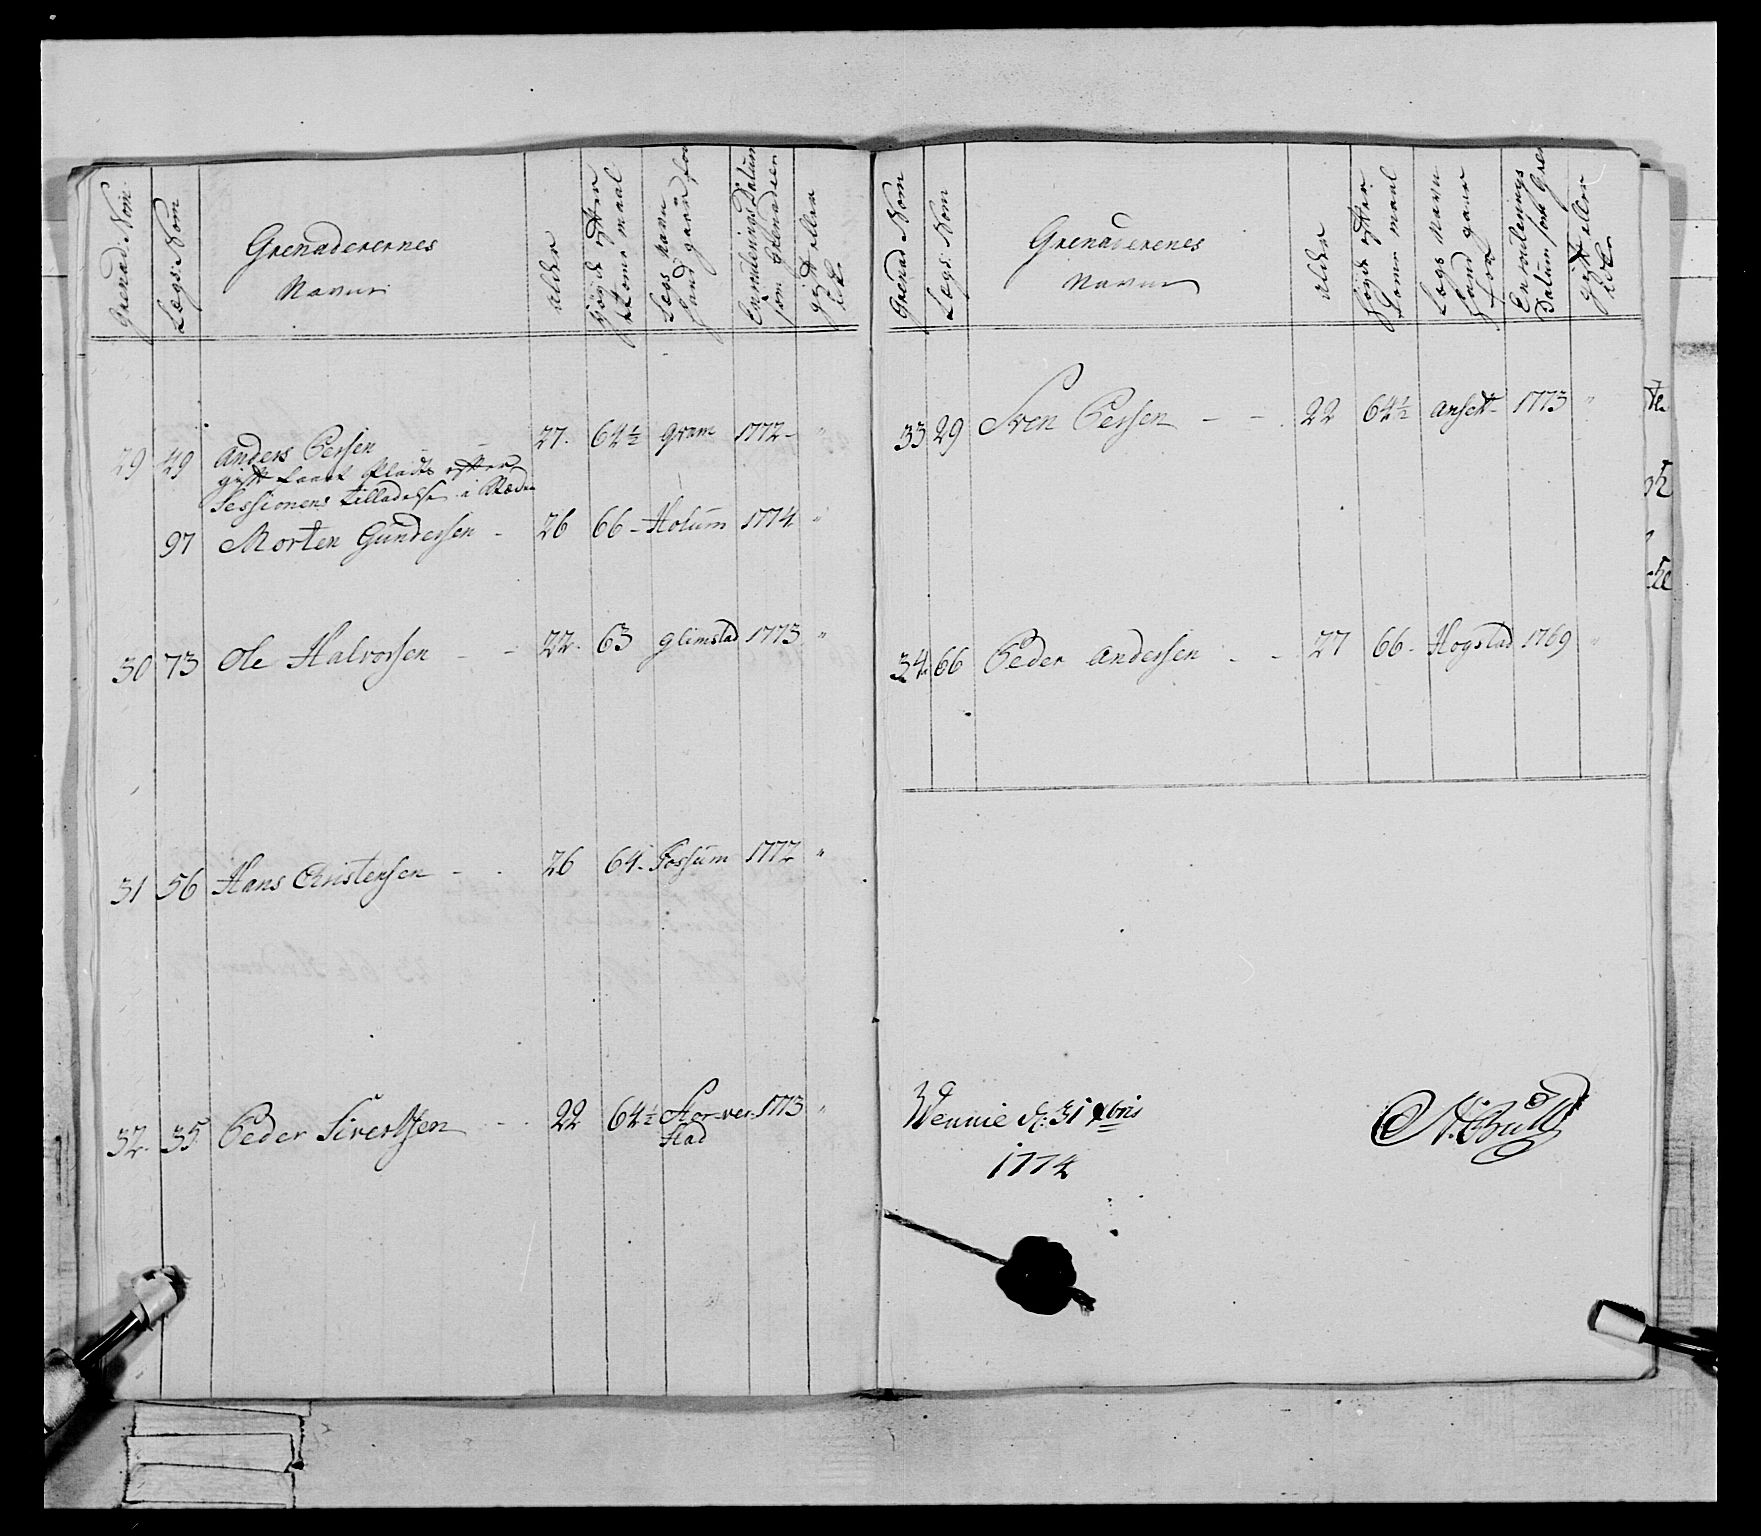 Grenad: Nom
Lægs: Nom
Grenaderernes
Navne
alder
Høyde efter
Lomme maal
Legs Navn
Hand gaar for
Enrulerings Datum
som Grenadeer
gift eller
ikke
29 49 Anders Persen - 27. 64½ gram 1772 - "
gift Laast Plads efter
Sessionens tilladelse i
97 Morten Gundersen - 26 66 - Holum 1774 "
30 73 Ole Halvorsen - - 22. 63 glimstad 1773 "
31 56 Hans Christensen - - 26 64 - Fossum 1772 "
32. 35 Peder Sivertsen - - 22 64½ 1773 "
stad
Grenad Nom
Legs: Nom
Grenaderenes
Navne
alder
Høyde efter
Lomme maal
Legs Navn
Hand gaar
for
Enroulerings
Datum som Gre
gift eller
ikke
33 29 Sven Persen - - 22 64½ 1773 "
34. 66 Peder Andersen - - 27 66 - Hogstad 1769 "
Wennie d: 31 xbris
1774
Bull